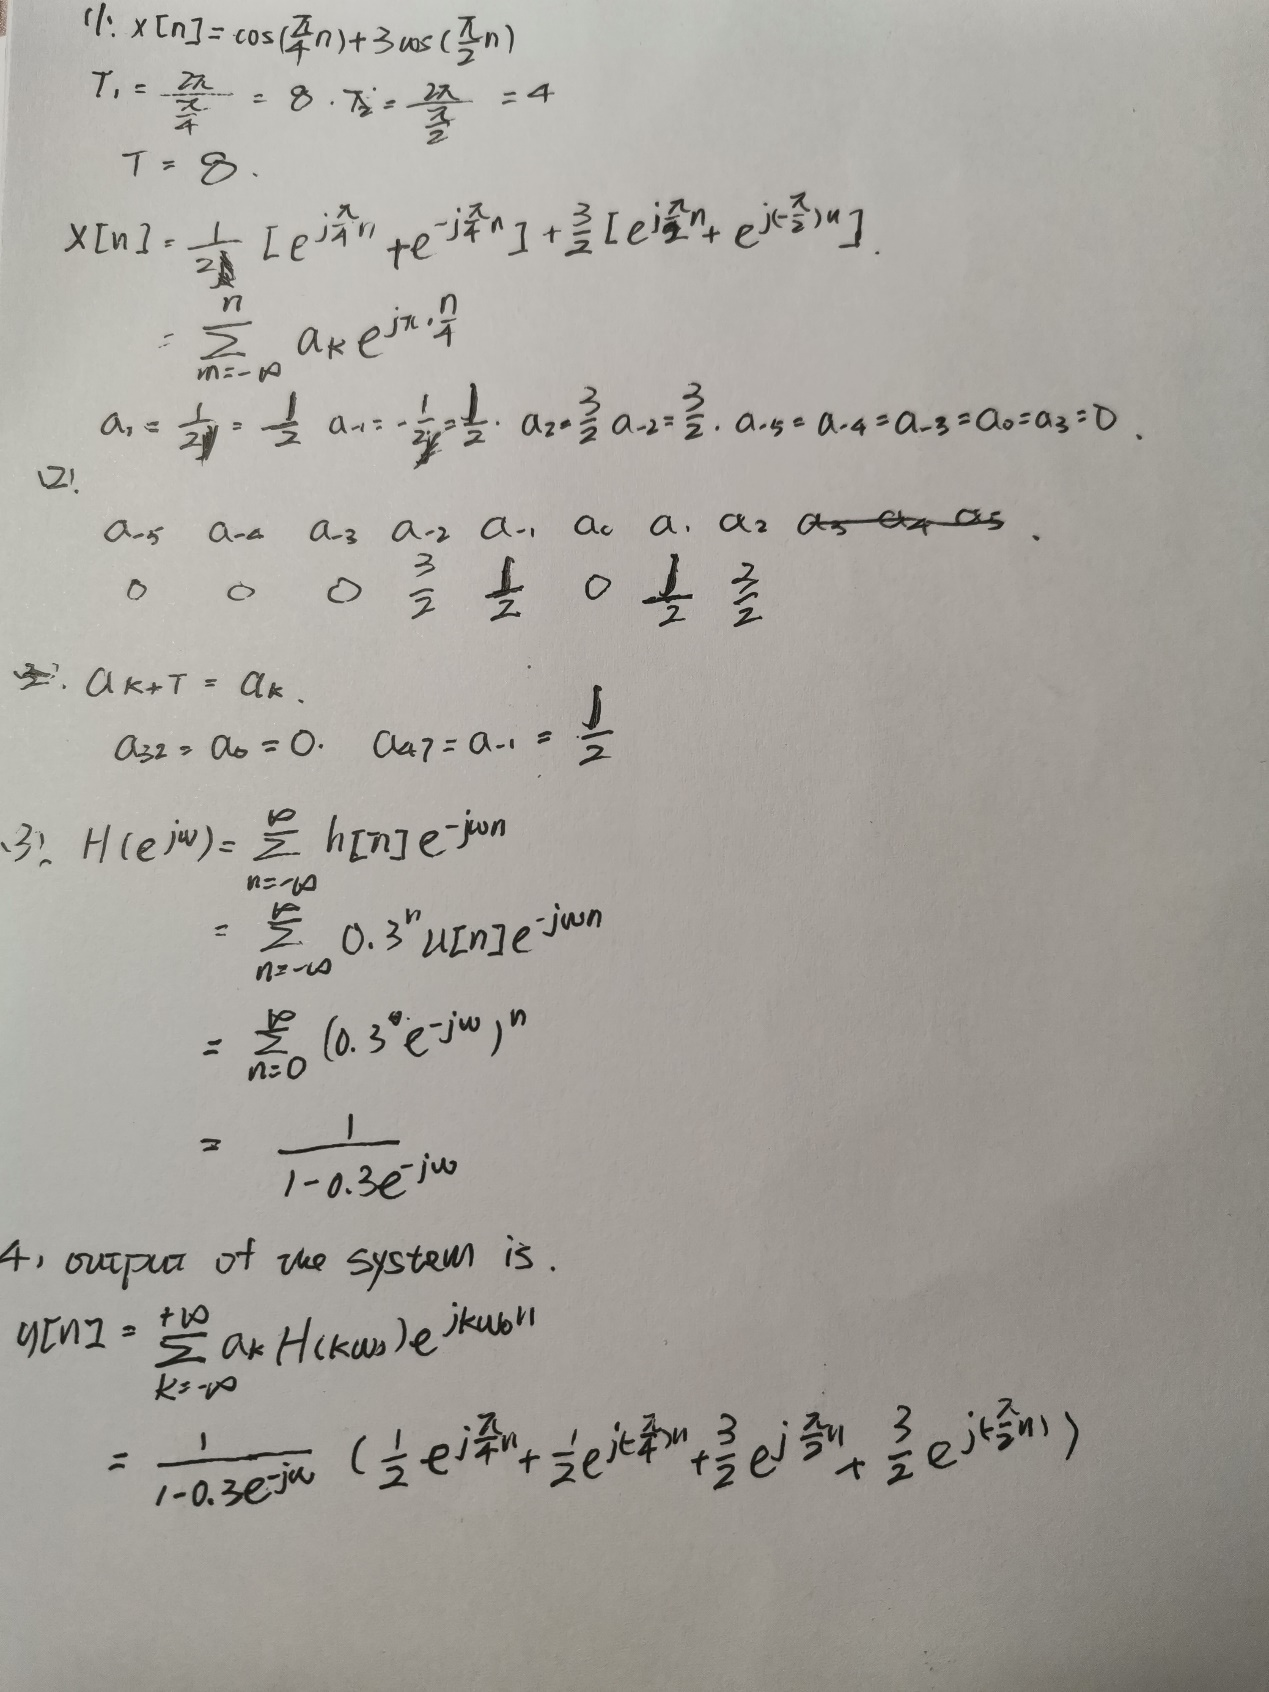 (1). x[n] = cos(π/4 n) + 3cos(π/2 n)
T₁ = 2π/(π/4) = 8 . T₂ = 2π/(π/2) = 4
T = 8 .
x[n] = 1/2 [e^{jπ/4 n} + e^{-jπ/4 n}] + 3/2 [e^{jπ/2 n} + e^{j(-π/2)n}] .
= Σ_{m=-∞}^{n} a_k e^{jπ·n/4}
a₁ = 1/2 = 1/2 a₋₁ = -1/2 = 1/2 . a₂ = 3/2 a₋₂ = 3/2 . a₋₅ = a₋₄ = a₋₃ = a₀ = a₃ = 0 .
(2).
a₋₅ a₋₄ a₋₃ a₋₂ a₋₁ a₀ a₁ a₂ a₃ a₄ a₅ .
0 0 0 3/2 1/2 0 1/2 3/2
a_{k+T} = a_k .
a₃₂ = a₀ = 0 . a₄₇ = a₋₁ = 1/2
(3). H(e^{jω}) = Σ_{n=-∞}^{∞} h[n] e^{-jωn}
= Σ_{n=-∞}^{∞} 0.3ⁿ u[n] e^{-jωn}
= Σ_{n=0}^{∞} (0.3 e^{-jω})ⁿ
= 1/(1-0.3e^{-jω})
4, output of the system is .
y[n] = Σ_{k=-∞}^{+∞} a_k H(kω₀) e^{jkω₀n}
= 1/(1-0.3e^{-jω}) (1/2 e^{jπ/4 n} + 1/2 e^{j(-π/4)n} + 3/2 e^{jπ/2 n} + 3/2 e^{j(-π/2 n)})